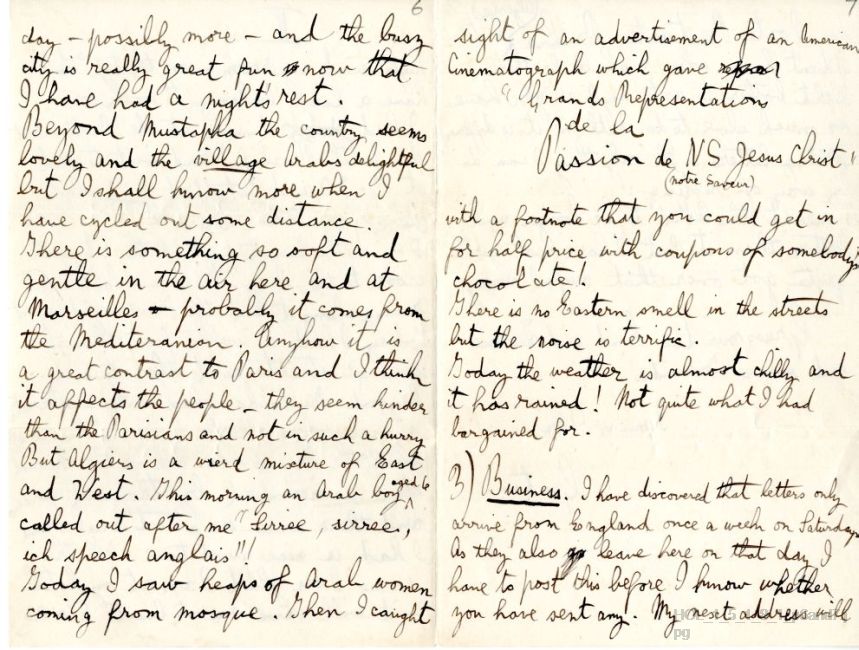 6
day – possibly more – and the busy
city is really great fun now that
I have had a night's rest.
Beyond Mustapha the country seems
lovely and the village Arabs delightful
but I shall know more when I
have cycled out some distance.
There is something so soft and
gentle in the air here and at
Marseilles – probably it comes from
the Mediteranian. Anyhow it is
a great contrast to Paris and I think
it affects the people – they seem kinder
than the Parisians and not in such a hurry
But Algiers is a wierd mixture of East
and West. This morning an Arab boy aged 6
called out after me "Sirree, sirree,
ich speech anglais"!!
Today I saw heaps of Arab women
coming from mosque. Then I caught
7
sight of an advertisement of an American
Cinematograph which gave
"Grands Representations
de la
Passion de NS Jesus Christ"
(notre Saveur)
with a footnote that you could get in
for half price with coupons of somebody's
chocolate!
There is no Eastern smell in the streets
but the noise is terrific.
Today the weather is almost chilly and
it has rained! Not quite what I had
bargained for.
3) Business. I have discovered that letters only
arrive from England once a week on Saturdays
As they also leave here on that day I
have to post this before I know whether
you have sent any. My next address will